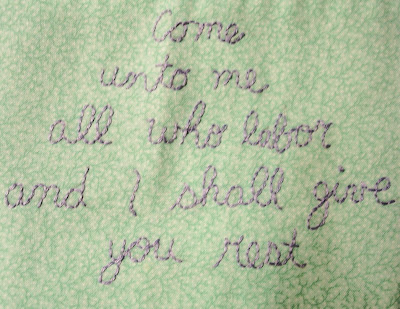 Come
unto me
all who labor
and I shall give
you rest